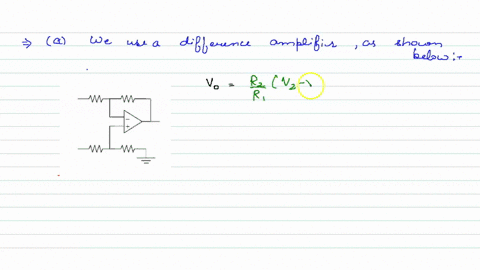 ⇒ (a) We use a difference amplifier, as shown
below:-
V₀ = R₂/R₁ (V₂ -